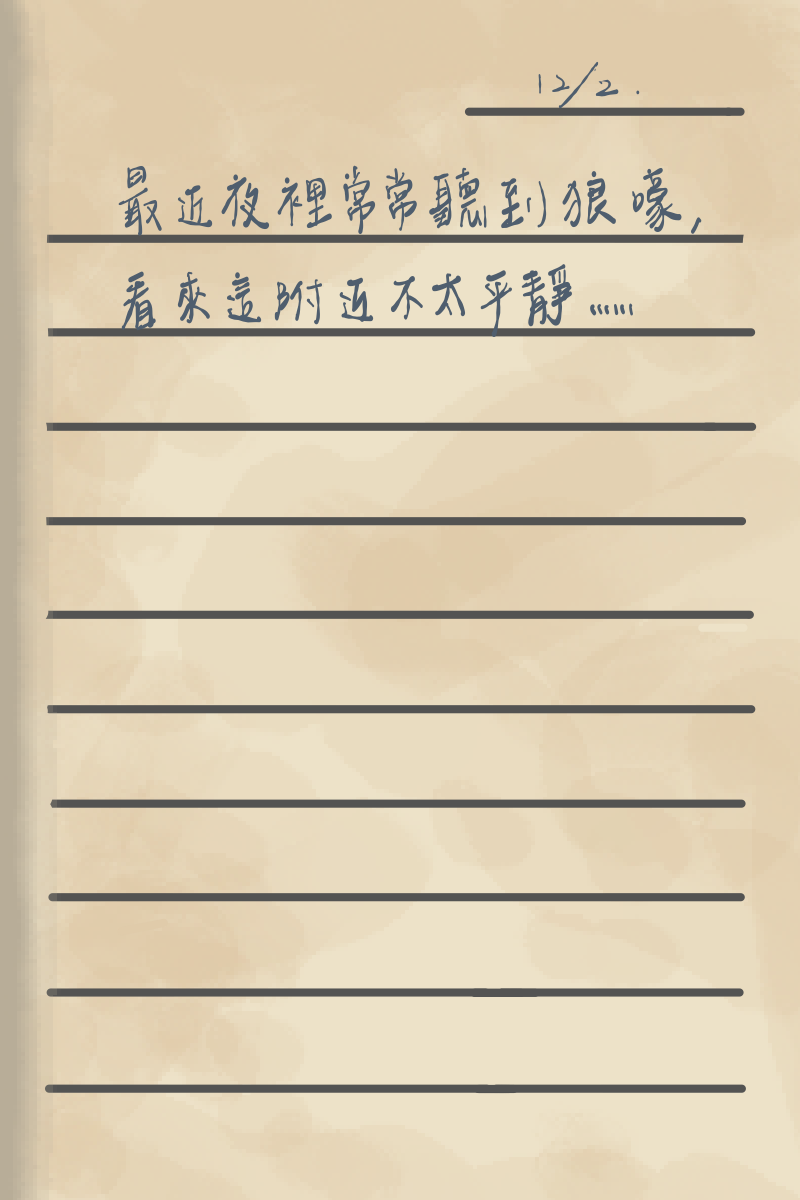 12/2.
最近夜裡常常聽到狼嚎,
看來這附近不太平靜……